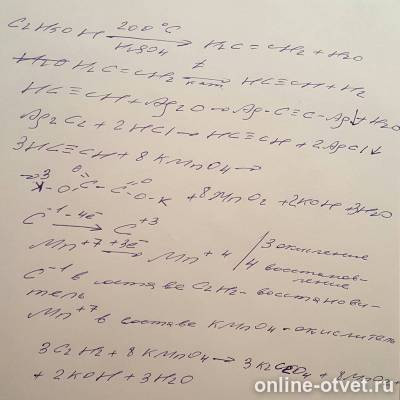 C2H5OH 200°C H2SO4 → H2C=CH2 + H2O
H2O H2C=CH2 t кат → HC≡CH + H2
HC≡CH + Ag2O → Ag-C≡C-Ag↓ + H2O
Ag2C2 + 2HCl → HC≡CH + 2AgCl↓
3HC≡CH + 8KMnO4 →
→ 3 K-O-C(=O)-C(=O)-O-K + 8MnO2 + 2KOH + 3H2O
C-1 -4e → C+3
Mn+7 +3e → Mn+4 / 3 окисление
/ 4 восстановление
C-1 в составе C2H2 - восстанови-
тель
Mn+7 в составе KMnO4 - окислитель
3C2H2 + 8KMnO4 → 3K2C2O4 + 8MnO2
+ 2KOH + 3H2O
online-otvet.ru